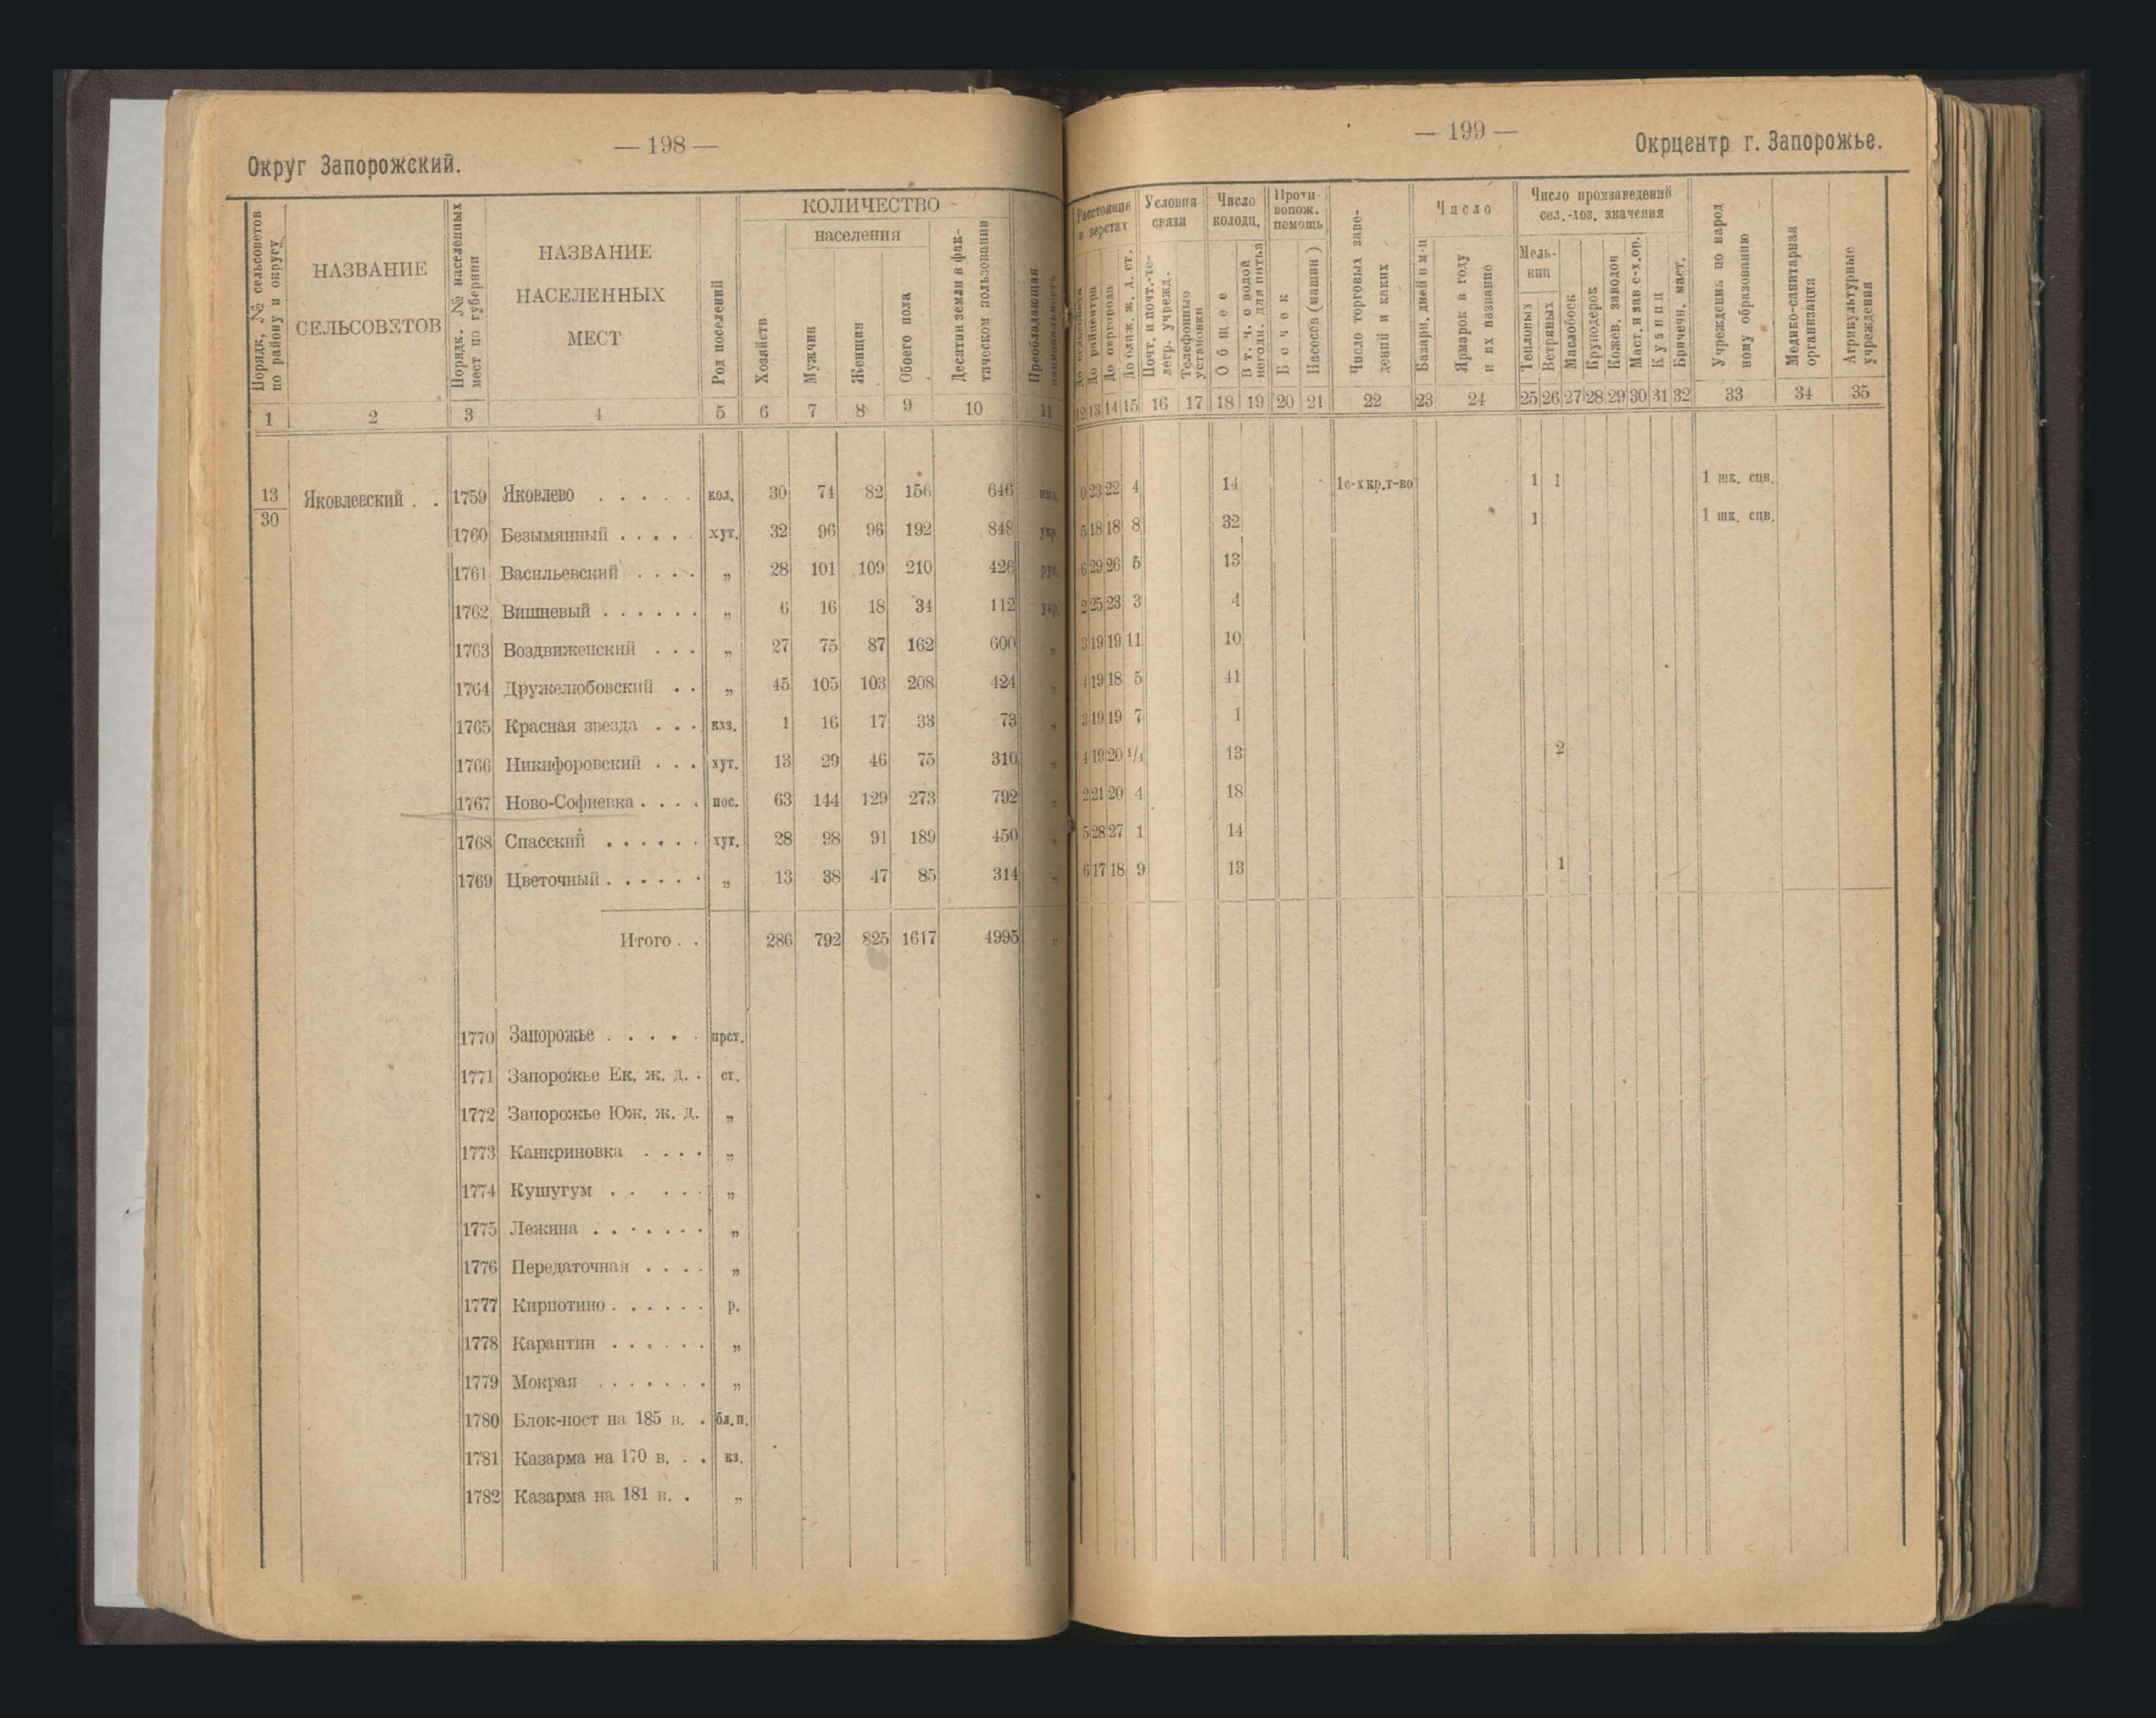 — 198 —
Округ Запорожский.
Порядк. № сельсоветов по району и округу
НАЗВАНИЕ СЕЛЬСОВЕТОВ
Порядк. № населенных мест по губернии
НАЗВАНИЕ НАСЕЛЕННЫХ МЕСТ
Род поселений
КОЛИЧЕСТВО
Хозяйств
населения
Мужчин
Женщин
Обоего пола
Десятин земли в фактическом пользовании
Преобладающая национальность
1 2 3 4 5 6 7 8 9 10 11
13/30 Яковлевский . . 1759 Яковлево . . . . . кол. 30 74 82 156 646 нмц.
1760 Безымянный . . . . . хут. 32 96 96 192 848 укр.
1761 Васильевский . . . . „ 28 101 109 210 426 рус.
1762 Вишневый . . . . . . „ 6 16 18 34 112 укр.
1763 Воздвиженский . . . „ 27 75 87 162 600 „
1764 Дружелюбовский . . „ 45 105 103 208 424 „
1765 Красная звезда . . . кхз. 1 16 17 33 73 „
1766 Никифоровский . . . хут. 13 29 46 75 310 „
1767 Ново-Софиевка . . . . пос. 63 144 129 273 792 „
1768 Спасский . . . . . . хут. 28 98 91 189 450 „
1769 Цветочный . . . . . . „ 13 38 47 85 314 „
Итого . . 286 792 825 1617 4995 „
1770 Запорожье . . . . . прст.
1771 Запорожье Ек. ж. д. . ст.
1772 Запорожье Юж. ж. д. „
1773 Канкриновка . . . . „
1774 Кушугум . . . . . „
1775 Лежина . . . . . . . „
1776 Передаточная . . . . „
1777 Кирпотино . . . . . . р.
1778 Карантин . . . . . . „
1779 Мокрая . . . . . . . „
1780 Блок-пост на 185 в. . бл.п.
1781 Казарма на 170 в. . . кз.
1782 Казарма на 181 в. . „
— 199 —
Окрцентр г. Запорожье.
Расстояние в верстах
До сельсовета
До райцентра
До окргорода
До ближ. ж. д. ст.
Условия связи
Почт. и почт.-телегр. учрежд.
Телефонные установки
Число колодц.
Общее
В т. ч. с водой негодн. для питья
Противопож. помощь
Бочек
Насосов (машин)
Число торговых заведений и каких
Число
Базарн. дней в м-ц
Ярмарок в году и их название
Число промзаведений сел.-хоз. значения
Мельниц
Тепловых
Ветряных
Маслобоек
Круподерок
Кожев. заводов
Маст. и зав с-х.ор.
Кузниц
Бричечн. маст.
Учреждения по народному образованию
Медико-санитарная организация
Агрикультурные учреждения
12 13 14 15 16 17 18 19 20 21 22 23 24 25 26 27 28 29 30 31 32 33 34 35
0 23 22 4 14 1с-х кр.т-во 1 1 1 шк. сцв.
5 18 18 8 32 1 1 шк. сцв.
6 29 26 5 13
2 25 23 3 4
3 19 19 11 10
4 19 18 5 41
3 19 19 7 1
4 19 20 1/4 13 2
2 21 20 4 18
5 28 27 1 14
6 17 18 9 13 1